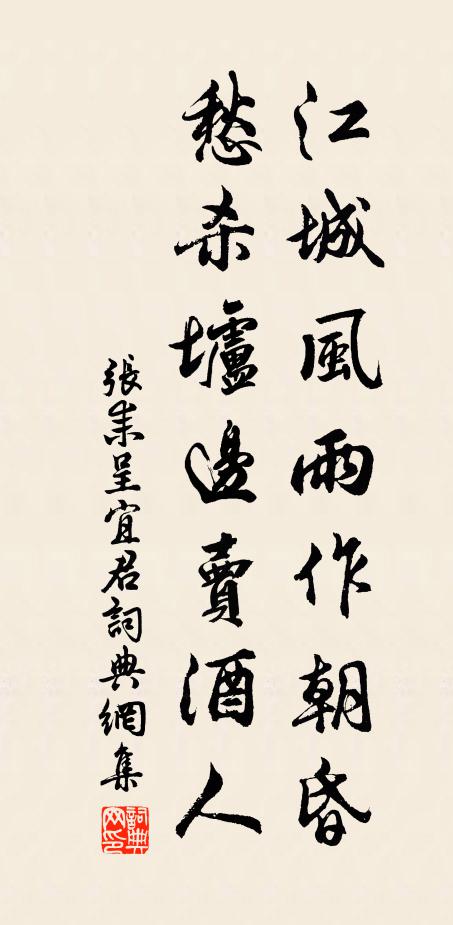 江城風雨作朝昏
愁杀壚邊賣酒人
張耒呈宜君詞典網集
詞典网印